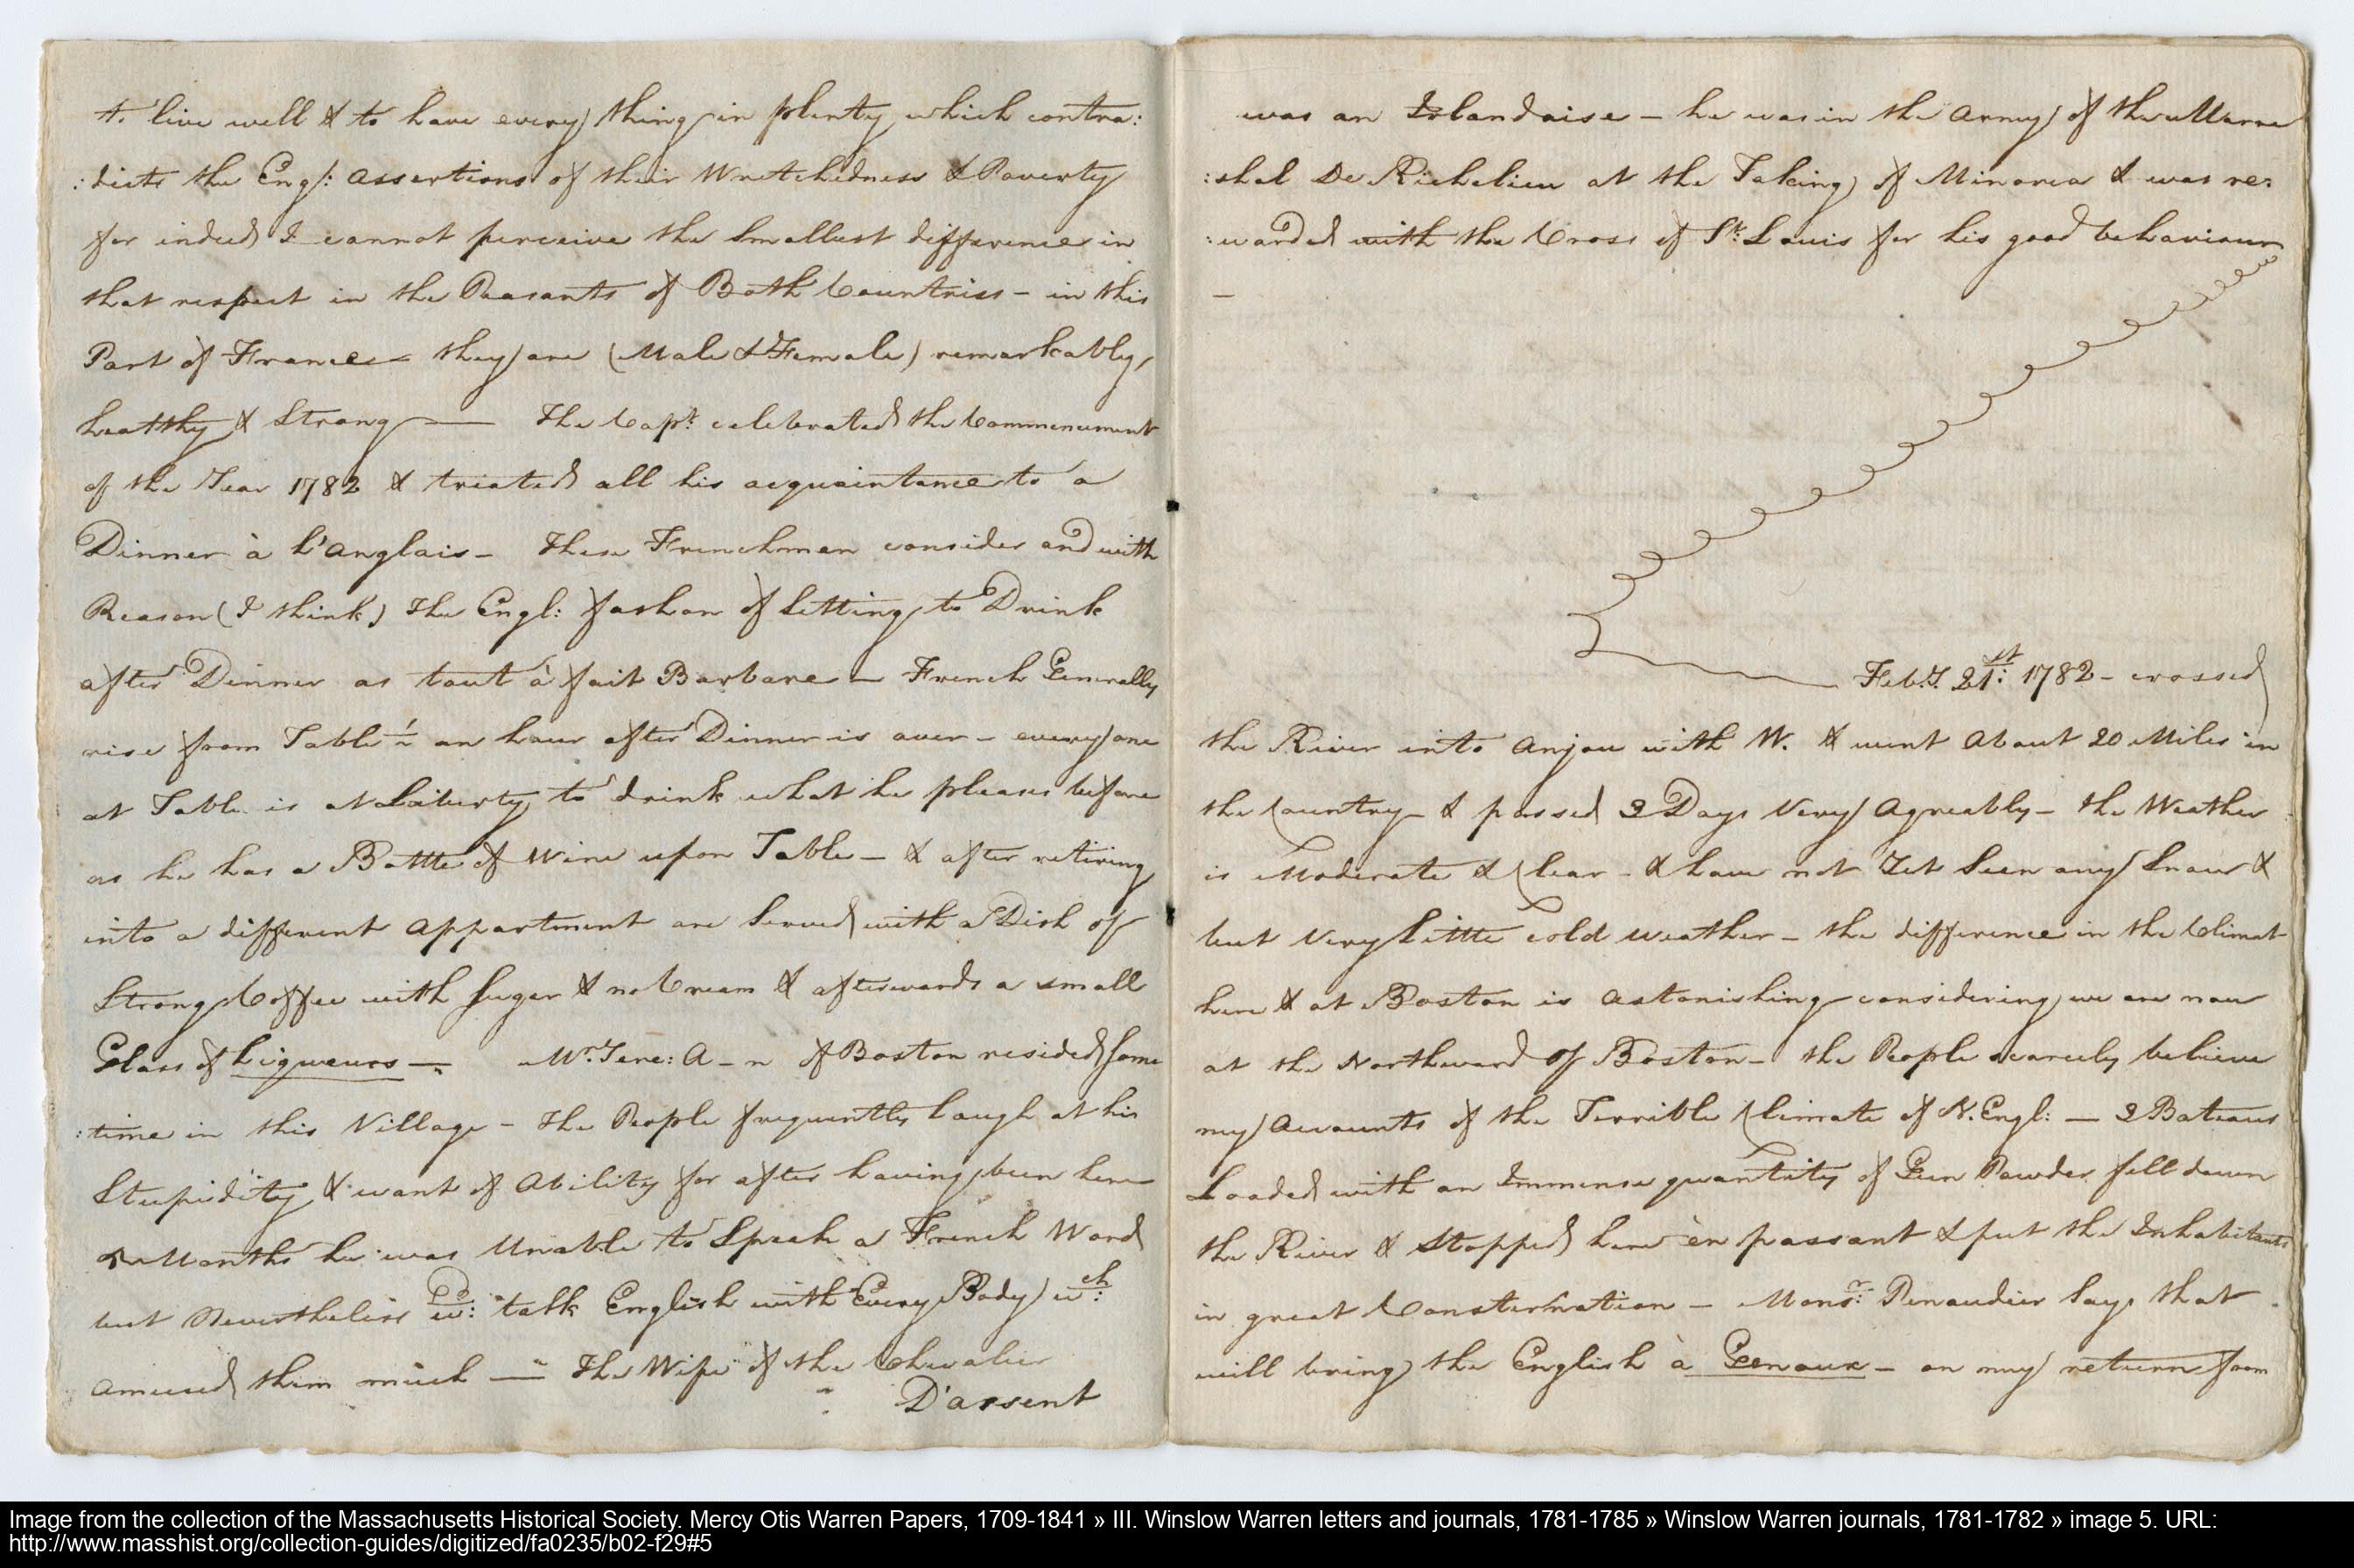 to live well & to have every thing in plenty which contra:
:dicts the Engl: assertions of their Wretchedness & Poverty
for indeed I cannot perceive the Smallest difference in
that respect in the Peasants of Both Countries – in this
Part of France – they are (Male & Female) remarkably
healthy & Strong — The Capt: celebrated the Commencement
of the Year 1782 & treated all his acquaintance to a
Dinner à l'anglais – These Frenchmen consider and with
Reason (I think) the Engl: fashon of Setting to Drink
after Dinner as tout à fait Barbare – French Generally
rise from Table ½ an hour after Dinner is over – every one
at Table is at Liberty to drink what he pleases before
as he has a Bottle of Wine upon Table – & after retiring
into a different appartment are Served with a Dish of
Strong Coffee with Sugar & no Cream & afterwards a small
Glass of Liqueurs — Mr. Jere: A–n of Boston resided some
:time in this Village – the People frequently laugh at his
Stupidity & want of Ability for after having been here
Months he was Unable to Speak a French Word
but Nevertheless wd: talk English with Every Body wch:
amused them much — The Wife of the Chevalier
D'arsent
was an Irlandaise – he was in the Army of the Marre
:shal De Richelieu at the Taking of Minorca & was re:
:warded with the Cross of St: Louis for his good behaviour
–
Feb.y. 21st: 1782 – crossed
the River into Anjou with W. & went About 20 Miles in
the Country – & passed 2 Days Very Agreably – the Weather
is Moderate & Clear – & have not Yet Seen any Snow &
but Very Little cold weather – the difference in the Climat
here & at Boston is astonishing considering we are now
at the Northward of Boston – the People scarcely believe
my Accounts of the Terrible Climate of N. Engl: — 2 Bateaus
Loaded with an Immense quantity of Gun Powder fell down
the River & Stopped here en passant & put the Inhabitants
in great Consternation – Monsr: Penaudier Says that
will bring the English à Genoux – on my return from
Image from the collection of the Massachusetts Historical Society. Mercy Otis Warren Papers, 1709-1841 » III. Winslow Warren letters and journals, 1781-1785 » Winslow Warren journals, 1781-1782 » image 5. URL:
http://www.masshist.org/collection-guides/digitized/fa0235/b02-f29#5